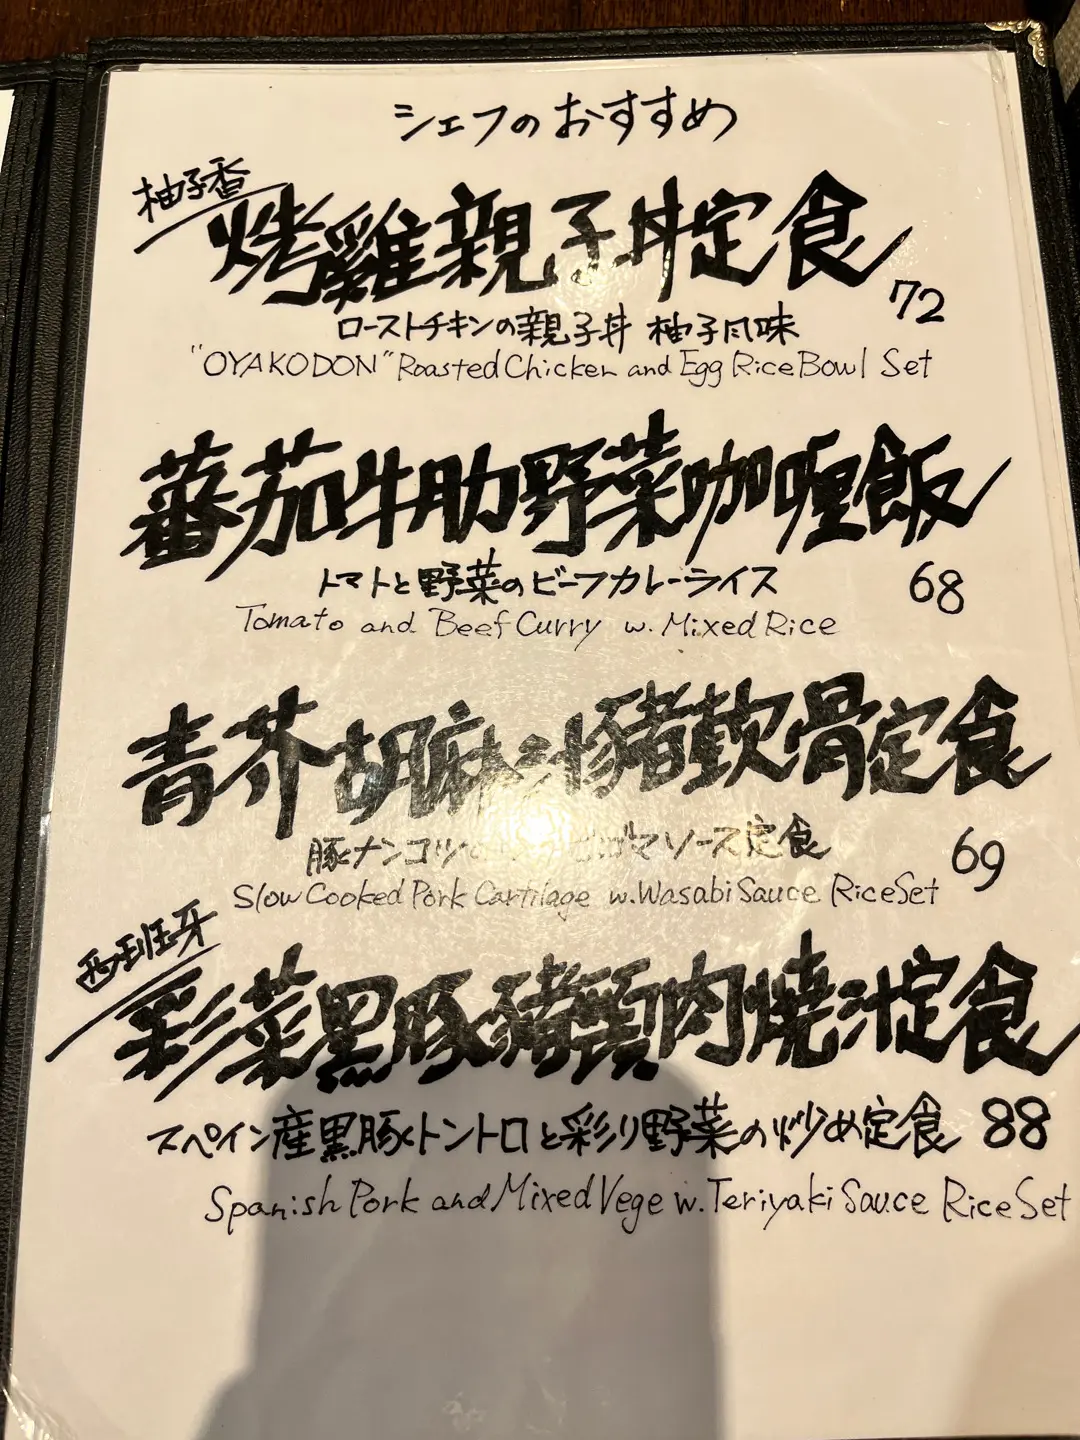 シェフのおすすめ
柚子香
烤雞親子丼定食
72
ローストチキンの親子丼 柚子風味
"OYAKODON" Roasted Chicken and Egg Rice Bowl Set
蕃茄牛肋野菜咖喱飯
トマトと野菜のビーフカレーライス
68
Tomato and Beef Curry w. Mixed Rice
青芥胡麻汁豚豬軟骨定食
豚ナンコツ ゴマソース定食
69
Slow Cooked Pork Cartilage w. Wasabi Sauce Rice Set
西班牙
彩菜黒豚豬頸肉燒汁定食
スペイン産黒豚トントロと彩り野菜の炒め定食 88
Spanish Pork and Mixed Vege w. Teriyaki Sauce Rice Set